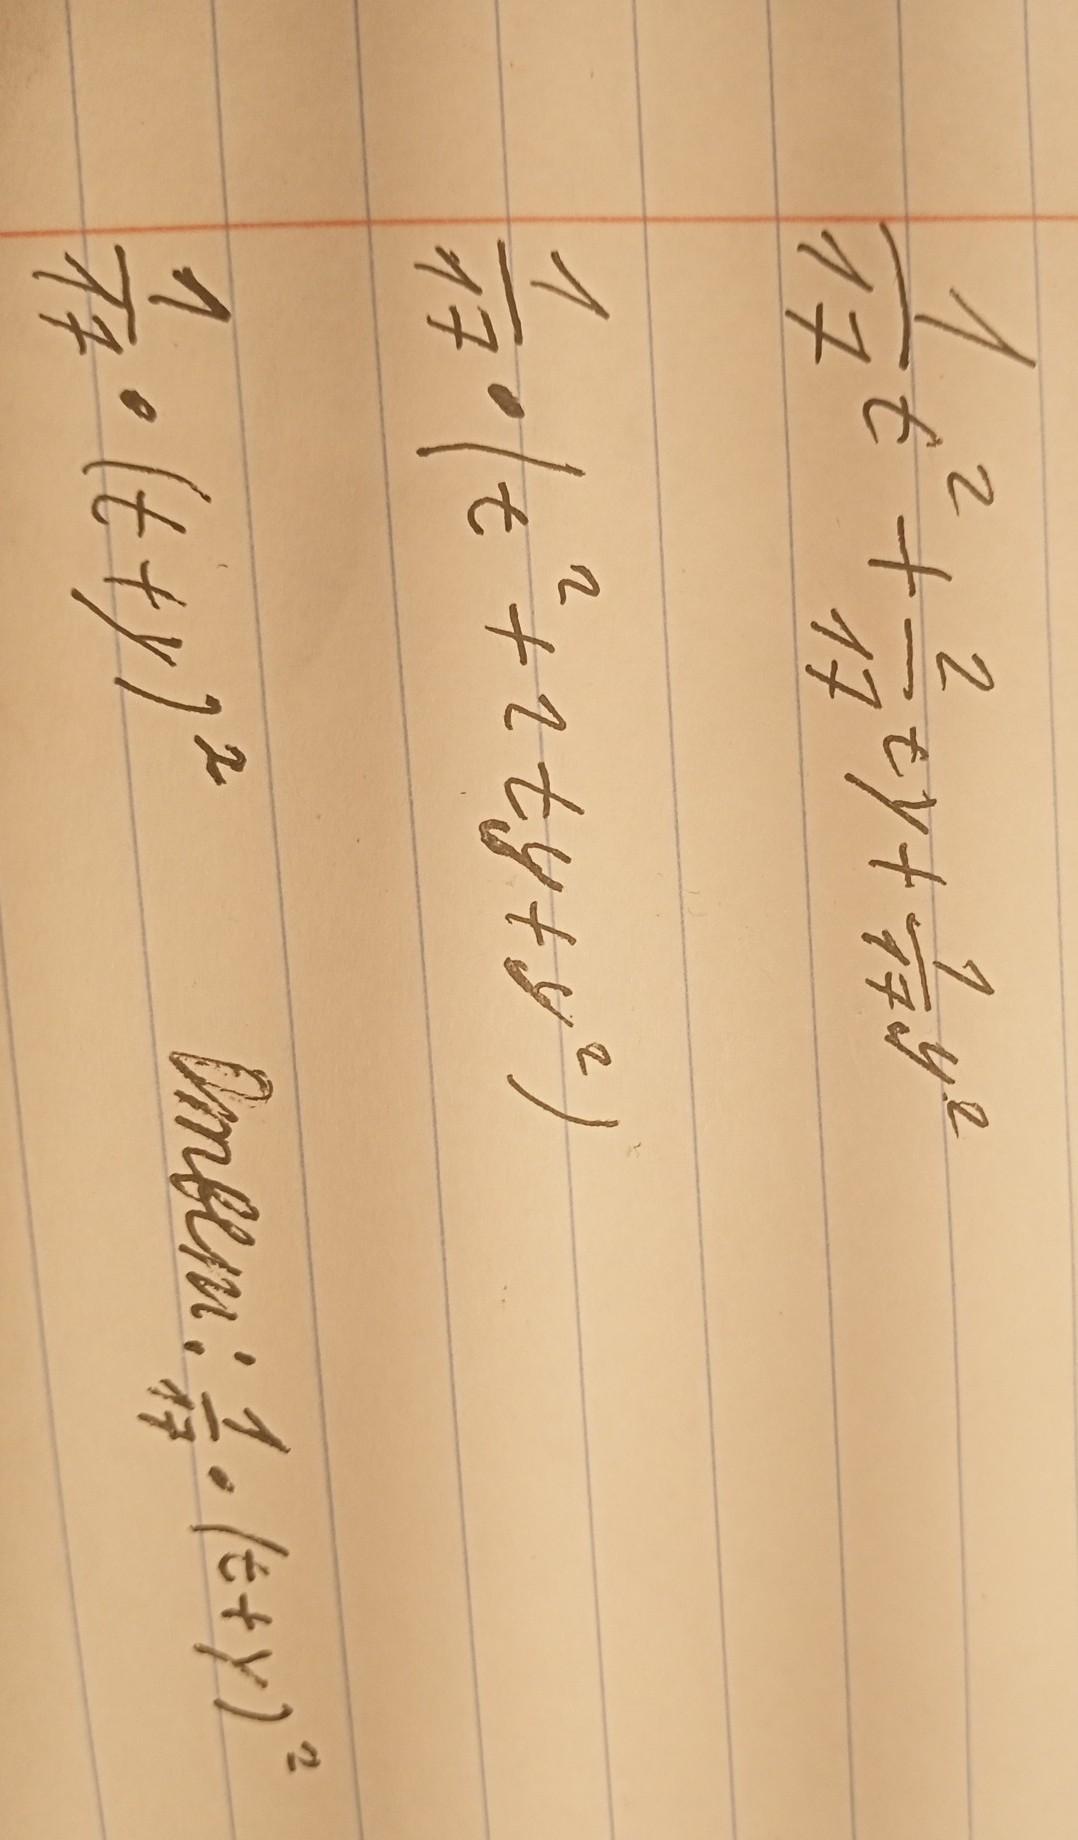 1/17 t² + 2/17 ty + 1/17 y²
1/17 • (t² + 2ty + y²)
1/17 • (t + y)² Ответ: 1/17 • (t + y)²